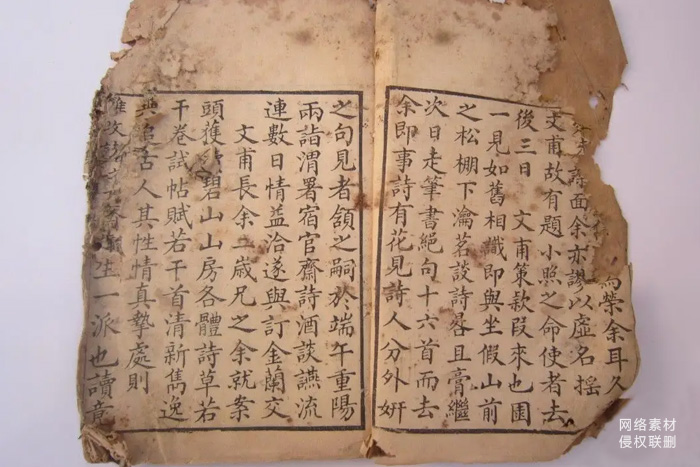 向榮余耳久
詩面余亦謬以虛名搖
文甫故有題小照之命使者去
後三日　文甫策款段來也園
一見如舊相識即與坐假山前
之松棚下瀹茗談詩晷且膏繼
次日走筆書絕句十六首而去
余即事詩有花見詩人分外妍
之句見者頷之嗣於端午重陽
兩詣渭署宿官齋詩酒談讌流
連數日情益洽遂與訂金蘭交
文甫長余二歲兄之余就案
頭獲 碧山山房各體詩草若
干卷試帖賦若干首清新雋逸
與 古人其性情真摯處則
生一派也讀竟
网络素材
侵权联删